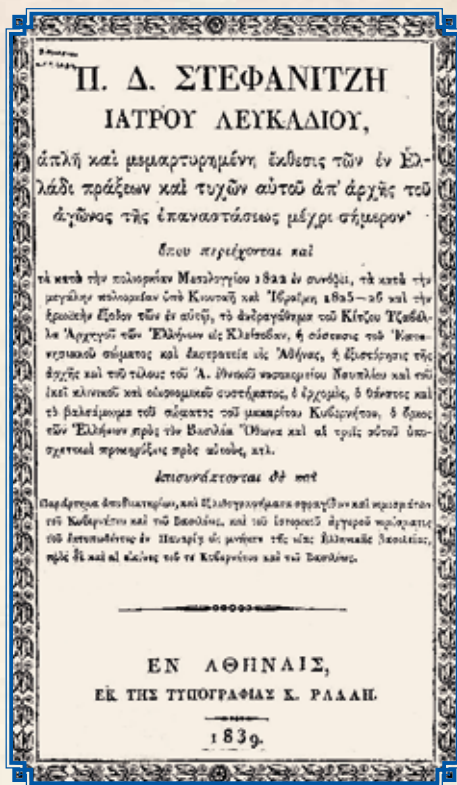 Π. Δ. ΣΤΕΦΑΝΙΤΖΗ
ΙΑΤΡΟΥ ΛΕΥΚΑΔΙΟΥ,
ἁπλῆ καὶ μεμαρτυρημένη ἔκθεσις τῶν ἐν Ἑλ-
λάδι πράξεων καὶ τυχῶν αὐτοῦ ἀπ' ἀρχῆς τοῦ
ἀγῶνος τῆς ἐπαναστάσεως μέχρι σήμερον·
ὅπου περιέχονται καὶ
τὰ κατὰ τὴν πολιορκίαν Μεσολογγίου 1822 ἐν συνόψει, τὰ κατὰ τὴν
μεγάλην πολιορκίαν ὑπὸ Κιουταχῆ καὶ Ἰβραΐμη 1825—26 καὶ τὴν
ἡρωικὴν ἔξοδον τῶν ἐν αὐτῷ, τὸ ἀνδραγάθημα τοῦ Κίτζου Τζαβέλ-
λα Ἀρχηγοῦ τῶν Ἑλλήνων εἰς Κλείσοβαν, ἡ σύστασις τοῦ Ἑπτα-
νησιακοῦ σώματος καὶ ἐκστρατεία εἰς Ἀθήνας, ἡ ἐξιστόρησις τῆς
ἀρχῆς καὶ τοῦ τέλους τοῦ Ἀ. ἐθνικοῦ νοσοκομείου Ναυπλίου καὶ τοῦ
ἐκεῖ κλινικοῦ καὶ οἰκονομικοῦ συστήματος, ὁ ἐρχομὸς, ὁ θάνατος καὶ
τὸ βαλσάμωμα τοῦ σώματος τοῦ μακαρίτου Κυβερνήτου, ὁ ὅρκος
τῶν Ἑλλήνων πρὸς τὸν Βασιλέα Ὄθωνα καὶ αἱ τρεῖς αὐτοῦ ὑπο-
σχετικαὶ προκηρύξεις πρὸς αὐτοὺς, κτλ.
ἐπισυνάπτονται δὲ καὶ
Παράρτημα ἀποδεικτηρίων, καὶ ἐξεικονίσματα σφραγίδων καὶ νομισμάτων
τοῦ Κυβερνήτου καὶ τοῦ Βασιλέως, καὶ τοῦ ἱστορικοῦ ἀργυροῦ νομίσματος
τοῦ ἐντυπωθέντος ἐν εἰς μνήμην τῆς νέας Ἑλληνικῆς βασιλείας,
πρὸς δὲ καὶ αἱ εἰκόνες τοῦ τε Κυβερνήτου καὶ τοῦ Βασιλέως.
ΕΝ ΑΘΗΝΑΙΣ,
ΕΚ ΤΗΣ ΤΥΠΟΓΡΑΦΙΑΣ Κ. ΡΑΛΛΗ.
1839.